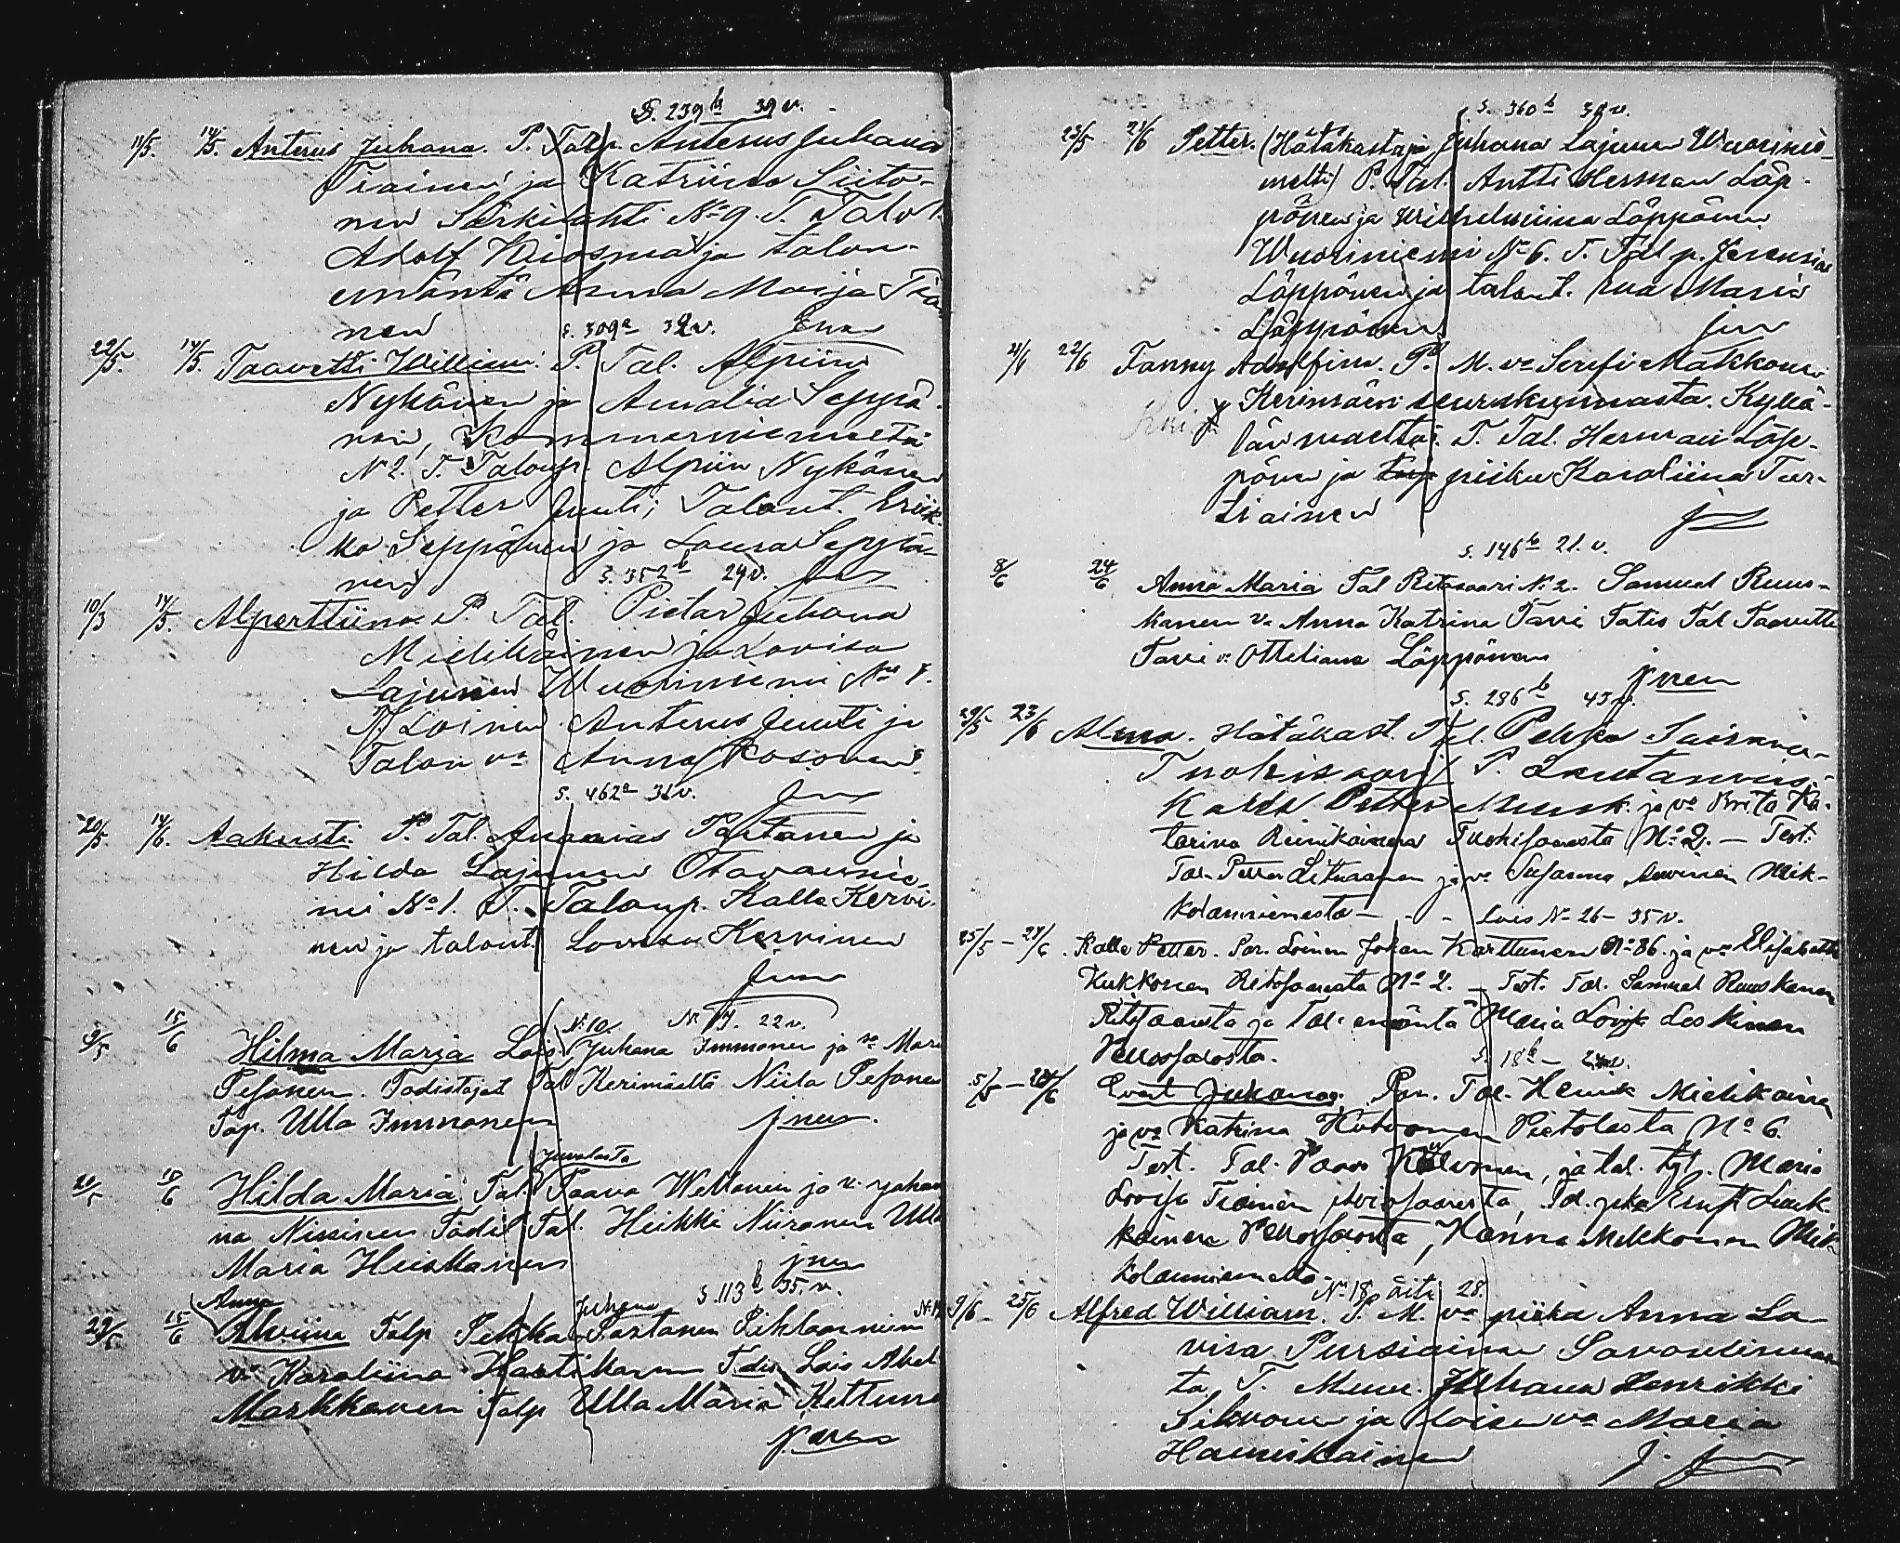 S. 239 b 39 v.
11/5. 14/5. Anterus Juhana. P. Talp. Anterus Juhana
Tiainen ja Katriina Siito-
nen Särkilahti No 9. T. Talol.
Adolf Kiosma ja talon-
emäntä Anna Maija Tia-
nen
S. 309 a 32 v. Jnen
22/5. 14/5. Taavetti William. P. Tal. Alpiin
Nykänen ja Amalia Seppä-
nen, Kommerniemeltä
N 2. T. Taloup. Alpiin Nykänen
ja Petter Juuti; Talont. Eriik-
ka Seppänen ja Loura Seppä-
nen
S. 352 b 29 v. Jnen
10/3 14/5. Alperttiina. P. Tal. Pietar Juhana
Miettinen ja Lovisa
Lajunen Wuoriniemi No 8.
T. Loinen Anterus Juuti ja
Talon va Anna Kosonen.
S. 462 a 36 v. Jnen
20/5. 14/6. Aakusti. P. Tal. Ananias Partanen ja
Hilda Lajunen Otavannie-
mi No 1. T. Taloup. Kalle Kervi-
nen ja talont. Lovisa Kervinen
Jnen
9/5 15/6 N:10. N 7. 22 v.
Hilma Marja Lois. Juhana Immonen ja vo Maria
Pesonen. Todistajat Tal Kerimäeltä Niila Pesonen
Tap. Ulla Immonen Jnen.
Juvolasta
20/5 15/6 Hilda Maria Tal Paava Weltonen ja v. Johan
na Nissinen Todist Tal. Heikki Niiranen Ulla
Maria Heiskanen Jnen
S. 113 b 35. v.
Anna Juhana
29/5 15/6 Alviina Talp Pekka Partanen Pihlaaniemi
v. Karoliina Hartikainen Todis Lois Abel
Markkanen Talp Ulla Maria Kettunen
Jnen
S. 360 b 38 v.
23/5 21/6 Petter. (Hätäkastaja Juhana Lajunen Wuorinie-
meltä) P. Tal. Antti Herman Löp-
pönen ja Wilhelmiina Löppönen
Wuoriniemi No 6. T. Tal p. Jeremias
Löppönen ja talont. Eva Maria
Löppönen. Jnen
21/4 22/6 Fanny Adolfina. P. M. va Serefi Makkonen
Kerimäen seurakunnasta. Kylä-
län maalta. T. Tal. Herman Löp-
pönen ja piika Karoliina Tur-
tiainen
J
S. 146 b 21. v.
8/6 24/6 Anna Maria Tal Ritosaari N: 2. Samuel Ruus-
kanen va Anna Katrina Tavi Tatis Tal Taavetti
Tavi v. Otteliana Löppönen
Jnen
S. 286 b 43 v.
29/5 23/6 Alma. Hätäkast. Tal. Pekka Sairanen
Tuokisaari P.
Kalle Petter Muuk. ja va Brita Ka-
tarina Reinikainen Tuokisaaresta No 2. — Test.
Tal. Petter Lituanen ja va Susanna Auvinen Mik-
kolanniemestä — - - lois No 26 - 35 v.
25/5 — 24/6. Kalle Petter. Par. Loinen Johan Karttunen No 86. ja va Elisabetta
Kukkonen Ritosaaresta No 2. — Test. Tal. Samuel Ruuskanen
Ritosaaresta ja Tal. emäntä Maria Lovisa Loskinen
Pellossalosta.
S. 18 b — 24 v.
5/5 — 24/6 Evert Juhana. Par. Tal. Henrik Mielikäinen
ja va Katrina Hirvonen Pietolasta No 6.
Test. Tal. Paavo Kälvinen, ja tal. tyt. Maria
Lovisa Tiainen Aviosaaresta, Tal. poika Ernst Lauk-
kainen Pellossalosta, Hanna Mikkonen Mik-
kolanniemeltä
No 18 äiti 28.
9/6 - 25/6 Alfred William. P. M. va piika Anna Lo-
visa Pursiainen Savonlinnas-
ta, T. Muur. Juhana Henrikki
Silvonen ja loisen va Maria
Haurikainen J. Jnen